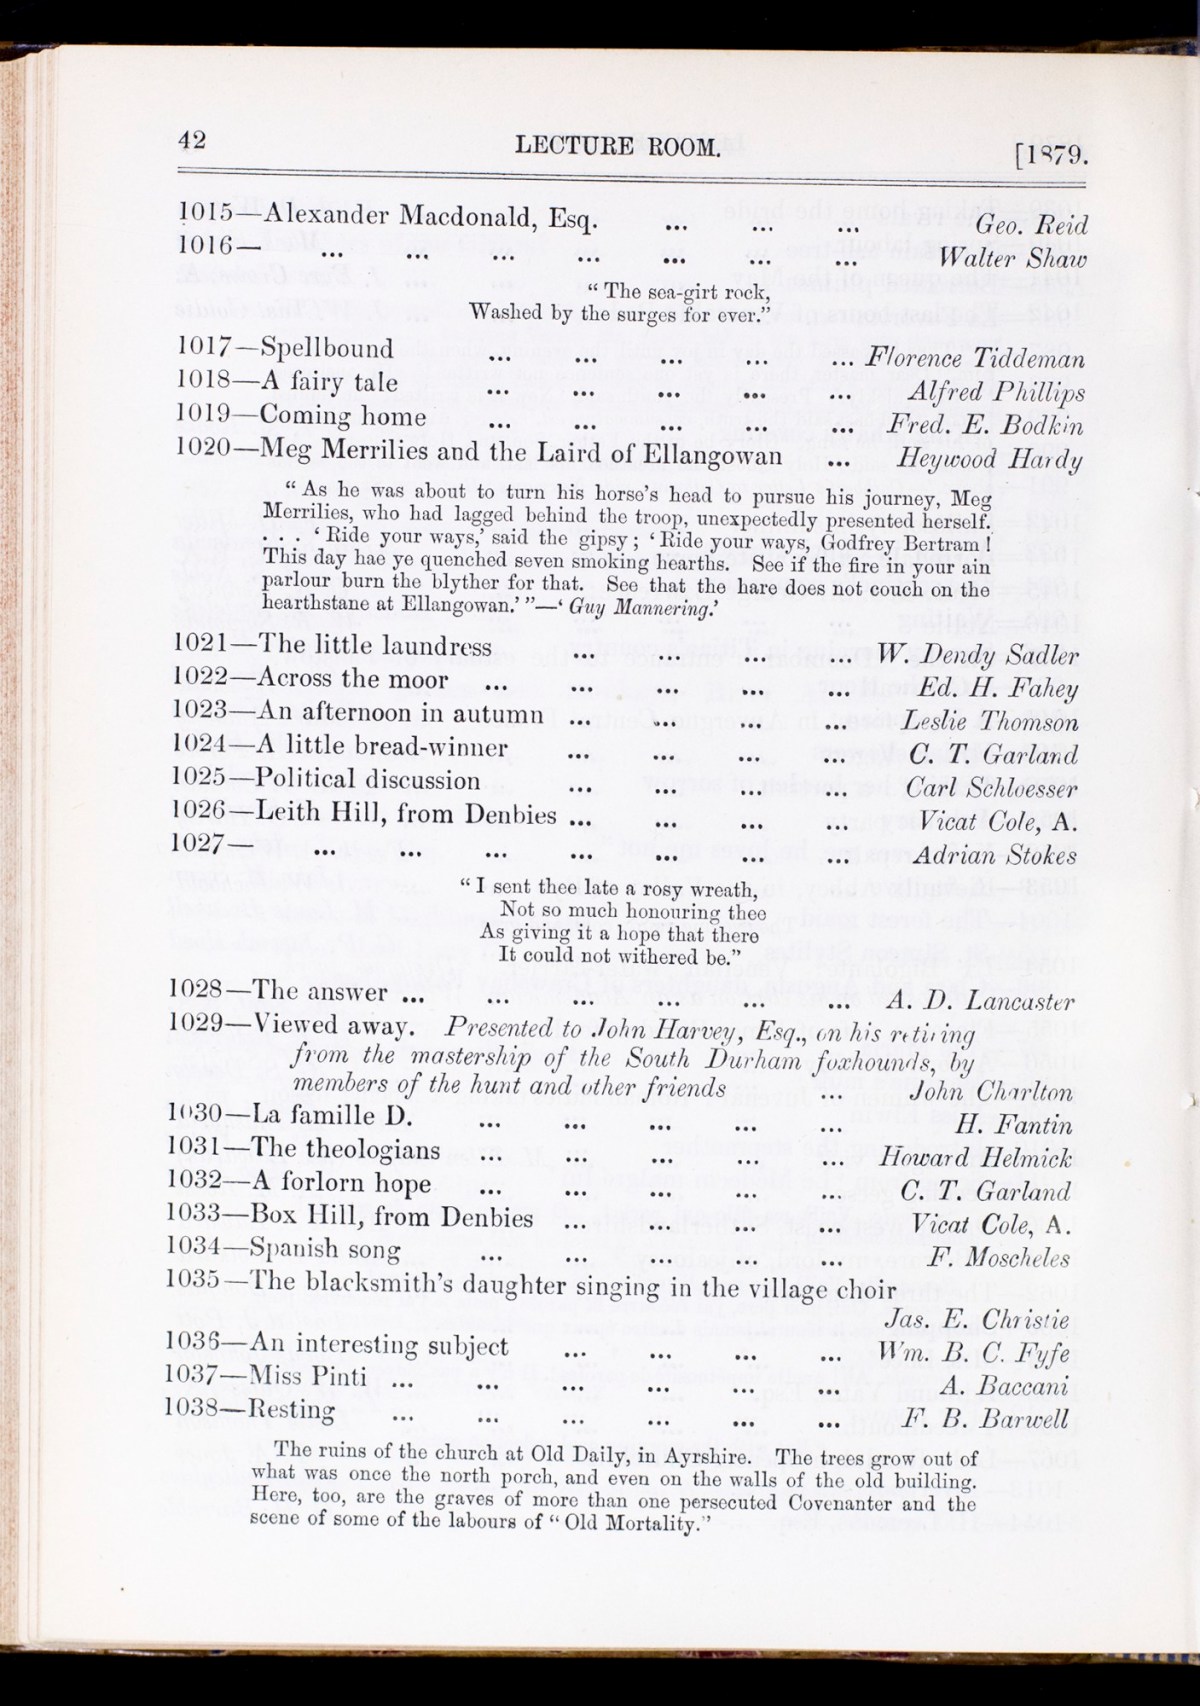 42 LECTURE ROOM. [1879.
1015—Alexander Macdonald, Esq. ... ... ... Geo. Reid
1016— ... ... ... ... ... ... ... Walter Shaw
“ The sea-girt rock,
Washed by the surges for ever.”
1017—Spellbound ... ... ... ... ... Florence Tiddeman
1018—A fairy tale ... ... ... ... ... Alfred Phillips
1019—Coming home ... ... ... ... ... Fred. E. Bodkin
1020—Meg Merrilies and the Laird of Ellangowan ... Heywood Hardy
“ As he was about to turn his horse’s head to pursue his journey, Meg
Merrilies, who had lagged behind the troop, unexpectedly presented herself.
. . . ‘ Ride your ways,’ said the gipsy ; ‘ Ride your ways, Godfrey Bertram !
This day hae ye quenched seven smoking hearths. See if the fire in your ain
parlour burn the blyther for that. See that the hare does not couch on the
hearthstane at Ellangowan.’ ”—‘ Guy Mannering.’
1021—The little laundress ... ... ... ... W. Dendy Sadler
1022—Across the moor ... ... ... ... ... Ed. H. Fahey
1023—An afternoon in autumn ... ... ... ... Leslie Thomson
1024—A little bread-winner ... ... ... ... C. T. Garland
1025—Political discussion ... ... ... ... Carl Schloesser
1026—Leith Hill, from Denbies ... ... ... ... Vicat Cole, A.
1027— ... ... ... ... ... ... ... Adrian Stokes
“ I sent thee late a rosy wreath,
Not so much honouring thee
As giving it a hope that there
It could not withered be.”
1028—The answer ... ... ... ... ... ... A. D. Lancaster
1029—Viewed away. Presented to John Harvey, Esq., on his retiring
from the mastership of the South Durham foxhounds, by
members of the hunt and other friends ... John Charlton
1030—La famille D. ... ... ... ... ... H. Fantin
1031—The theologians ... ... ... ... ... Howard Helmick
1032—A forlorn hope ... ... ... ... ... C. T. Garland
1033—Box Hill, from Denbies ... ... ... ... Vicat Cole, A.
1034—Spanish song ... ... ... ... ... F. Moscheles
1035—The blacksmith’s daughter singing in the village choir
Jas. E. Christie
1036—An interesting subject ... ... ... ... Wm. B. C. Fyfe
1037—Miss Pinti ... ... ... ... ... ... A. Baccani
1038—Resting ... ... ... ... ... ... F. B. Barwell
The ruins of the church at Old Daily, in Ayrshire. The trees grow out of
what was once the north porch, and even on the walls of the old building.
Here, too, are the graves of more than one persecuted Covenanter and the
scene of some of the labours of “ Old Mortality.”